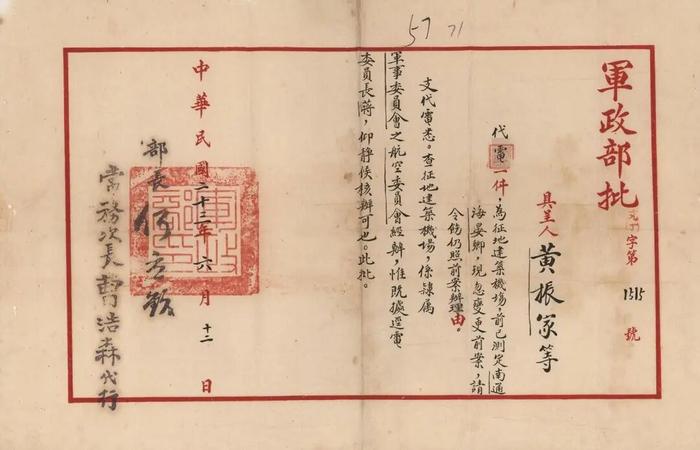 57 71
軍政部批
字第1515號
具呈人 黃振家等
代電一件，為征地建築機場，前已測定南通
海晏鄉，現忽變更前案，請
令飭仍照前案辦理由。
支代電悉。查征地建築機場，係隸屬
軍事委員會之航空委員會經辦，惟既據逕電
委員長蔣，仰靜候核辦可也。此批。
中華民國二十三年六月十二日
部長 何應欽
常務次長曹浩森代行